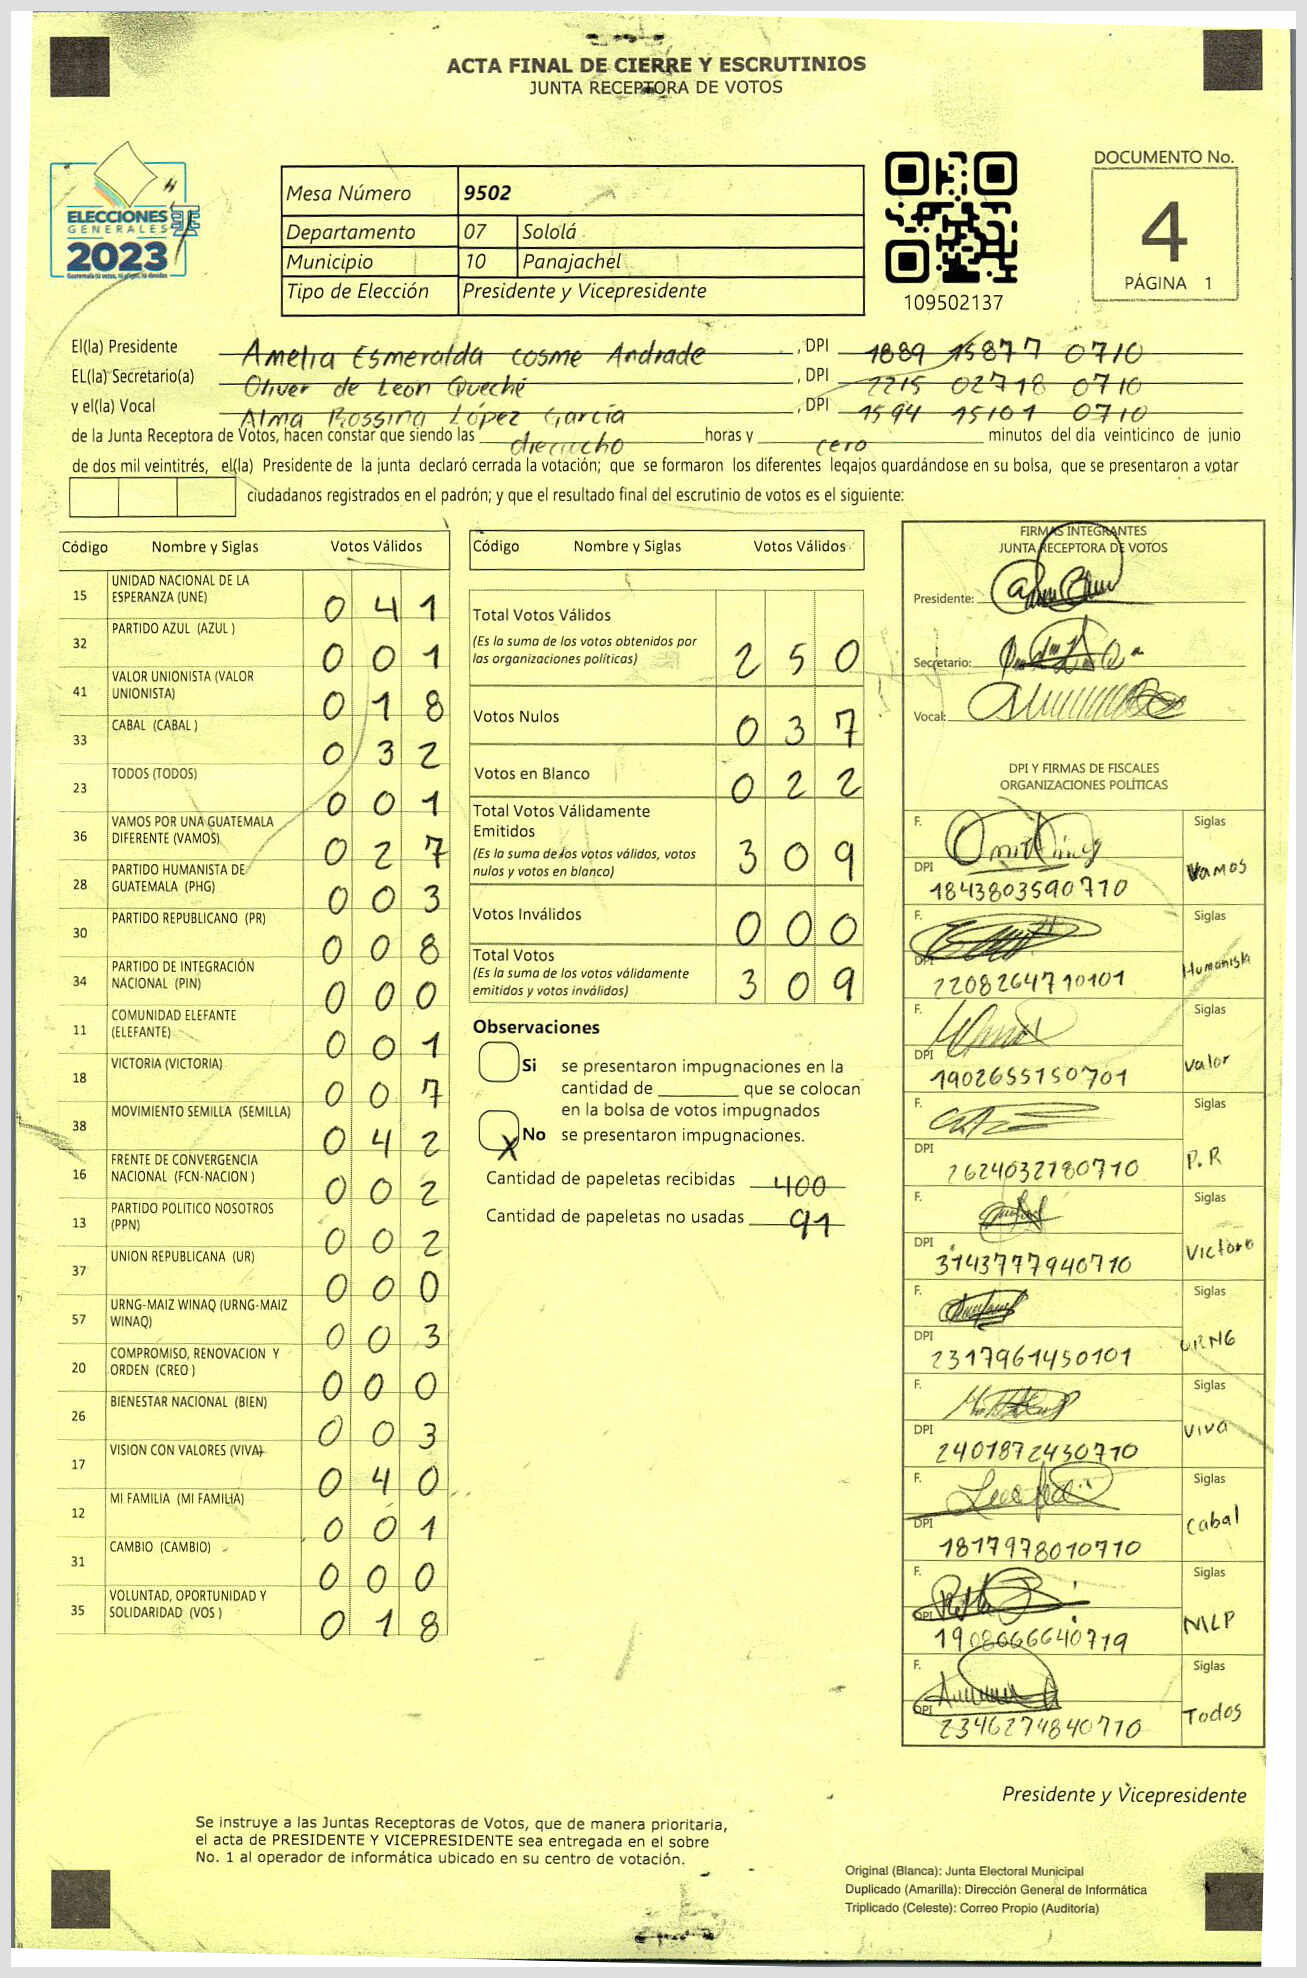 ACTA FINAL DE CIERRE Y ESCRUTINIOS
JUNTA RECEPTORA DE VOTOS
ELECCIONES
GENERALES
2023
Mesa Número 9502
Departamento 07 Sololá
Municipio 10 Panajachel
Tipo de Elección Presidente y Vicepresidente
109502137
DOCUMENTO No.
4
PÁGINA 1
El(la) Presidente Amelia Esmeralda Cosme Andrade, DPI 1889 15877 0710
EL(la) Secretario(a) Oliver de Leon Queché, DPI 2215 02718 0710
y el(la) Vocal Alma Rossina López García, DPI 1594 15101 0710
de la Junta Receptora de Votos, hacen constar que siendo las dieciocho horas y cero minutos del día veinticinco de junio
de dos mil veintitrés, el(la) Presidente de la junta declaró cerrada la votación; que se formaron los diferentes legajos guardándose en su bolsa, que se presentaron a votar
ciudadanos registrados en el padrón; y que el resultado final del escrutinio de votos es el siguiente:
Código Nombre y Siglas Votos Válidos
15 UNIDAD NACIONAL DE LA
ESPERANZA (UNE) 0 4 1
32 PARTIDO AZUL (AZUL ) 0 0 1
41 VALOR UNIONISTA (VALOR
UNIONISTA) 0 1 8
33 CABAL (CABAL ) 0 3 2
23 TODOS (TODOS) 0 0 1
36 VAMOS POR UNA GUATEMALA
DIFERENTE (VAMOS) 0 2 7
28 PARTIDO HUMANISTA DE
GUATEMALA (PHG) 0 0 3
30 PARTIDO REPUBLICANO (PR) 0 0 8
34 PARTIDO DE INTEGRACIÓN
NACIONAL (PIN) 0 0 0
11 COMUNIDAD ELEFANTE
(ELEFANTE) 0 0 1
18 VICTORIA (VICTORIA) 0 0 7
38 MOVIMIENTO SEMILLA (SEMILLA) 0 4 2
16 FRENTE DE CONVERGENCIA
NACIONAL (FCN-NACION ) 0 0 2
13 PARTIDO POLITICO NOSOTROS
(PPN) 0 0 2
37 UNION REPUBLICANA (UR) 0 0 0
57 URNG-MAIZ WINAQ (URNG-MAIZ
WINAQ) 0 0 3
20 COMPROMISO, RENOVACION Y
ORDEN (CREO ) 0 0 0
26 BIENESTAR NACIONAL (BIEN) 0 0 3
17 VISION CON VALORES (VIVA) 0 4 0
12 MI FAMILIA (MI FAMILIA) 0 0 1
31 CAMBIO (CAMBIO) 0 0 0
35 VOLUNTAD, OPORTUNIDAD Y
SOLIDARIDAD (VOS ) 0 1 8
Código Nombre y Siglas Votos Válidos
Total Votos Válidos
(Es la suma de los votos obtenidos por
las organizaciones políticas) 2 5 0
Votos Nulos 0 3 7
Votos en Blanco 0 2 2
Total Votos Válidamente
Emitidos
(Es la suma de los votos válidos, votos
nulos y votos en blanco) 3 0 9
Votos Inválidos 0 0 0
Total Votos
(Es la suma de los votos válidamente
emitidos y votos inválidos) 3 0 9
Observaciones
Si se presentaron impugnaciones en la
cantidad de ________ que se colocan
en la bolsa de votos impugnados
X No se presentaron impugnaciones.
Cantidad de papeletas recibidas 400
Cantidad de papeletas no usadas 91
FIRMAS INTEGRANTES
JUNTA RECEPTORA DE VOTOS
Presidente:
Secretario:
Vocal:
DPI Y FIRMAS DE FISCALES
ORGANIZACIONES POLÍTICAS
F. Siglas
DPI 1843803590710 Vamos
F. Siglas
DPI 2208264710101 Humanista
F. Siglas
DPI 1902655150701 Valor
F. Siglas
DPI 2624032180710 P.R
F. Siglas
DPI 3143777940710 Victoria
F. Siglas
DPI 2317961450101 URNG
F. Siglas
DPI 2401872430710 Viva
F. Siglas
DPI 1817978010710 Cabal
F. Siglas
DPI 1908666640719 MLP
F. Siglas
DPI 2346274840710 Todos
Presidente y Vicepresidente
Se instruye a las Juntas Receptoras de Votos, que de manera prioritaria,
el acta de PRESIDENTE Y VICEPRESIDENTE sea entregada en el sobre
No. 1 al operador de informática ubicado en su centro de votación.
Original (Blanca): Junta Electoral Municipal
Duplicado (Amarilla): Dirección General de Informática
Triplicado (Celeste): Correo Propio (Auditoría)